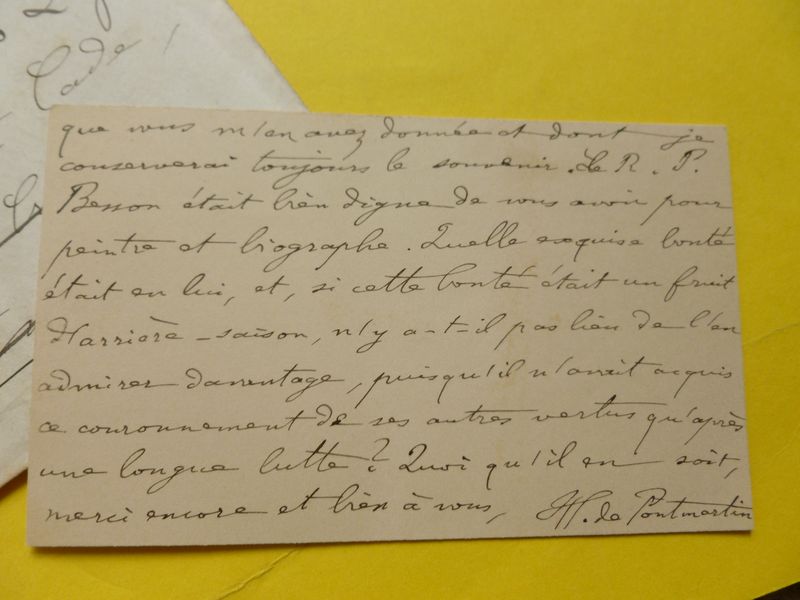 Cade !
que vous m'en avez donnée et dont je
conserverai toujours le souvenir. Le R. P.
Besson était bien digne de vous avoir pour
peintre et biographe. Quelle exquise bonté
était en lui, et, si cette bonté était un fruit
d'arrière-saison, n'y a-t-il pas lieu de l'en
admirer davantage, puisqu'il n'avait acquis
ce couronnement de ses autres vertus qu'après
une longue lutte ? Quoi qu'il en soit,
merci encore et bien à vous, H. de Pontmartin